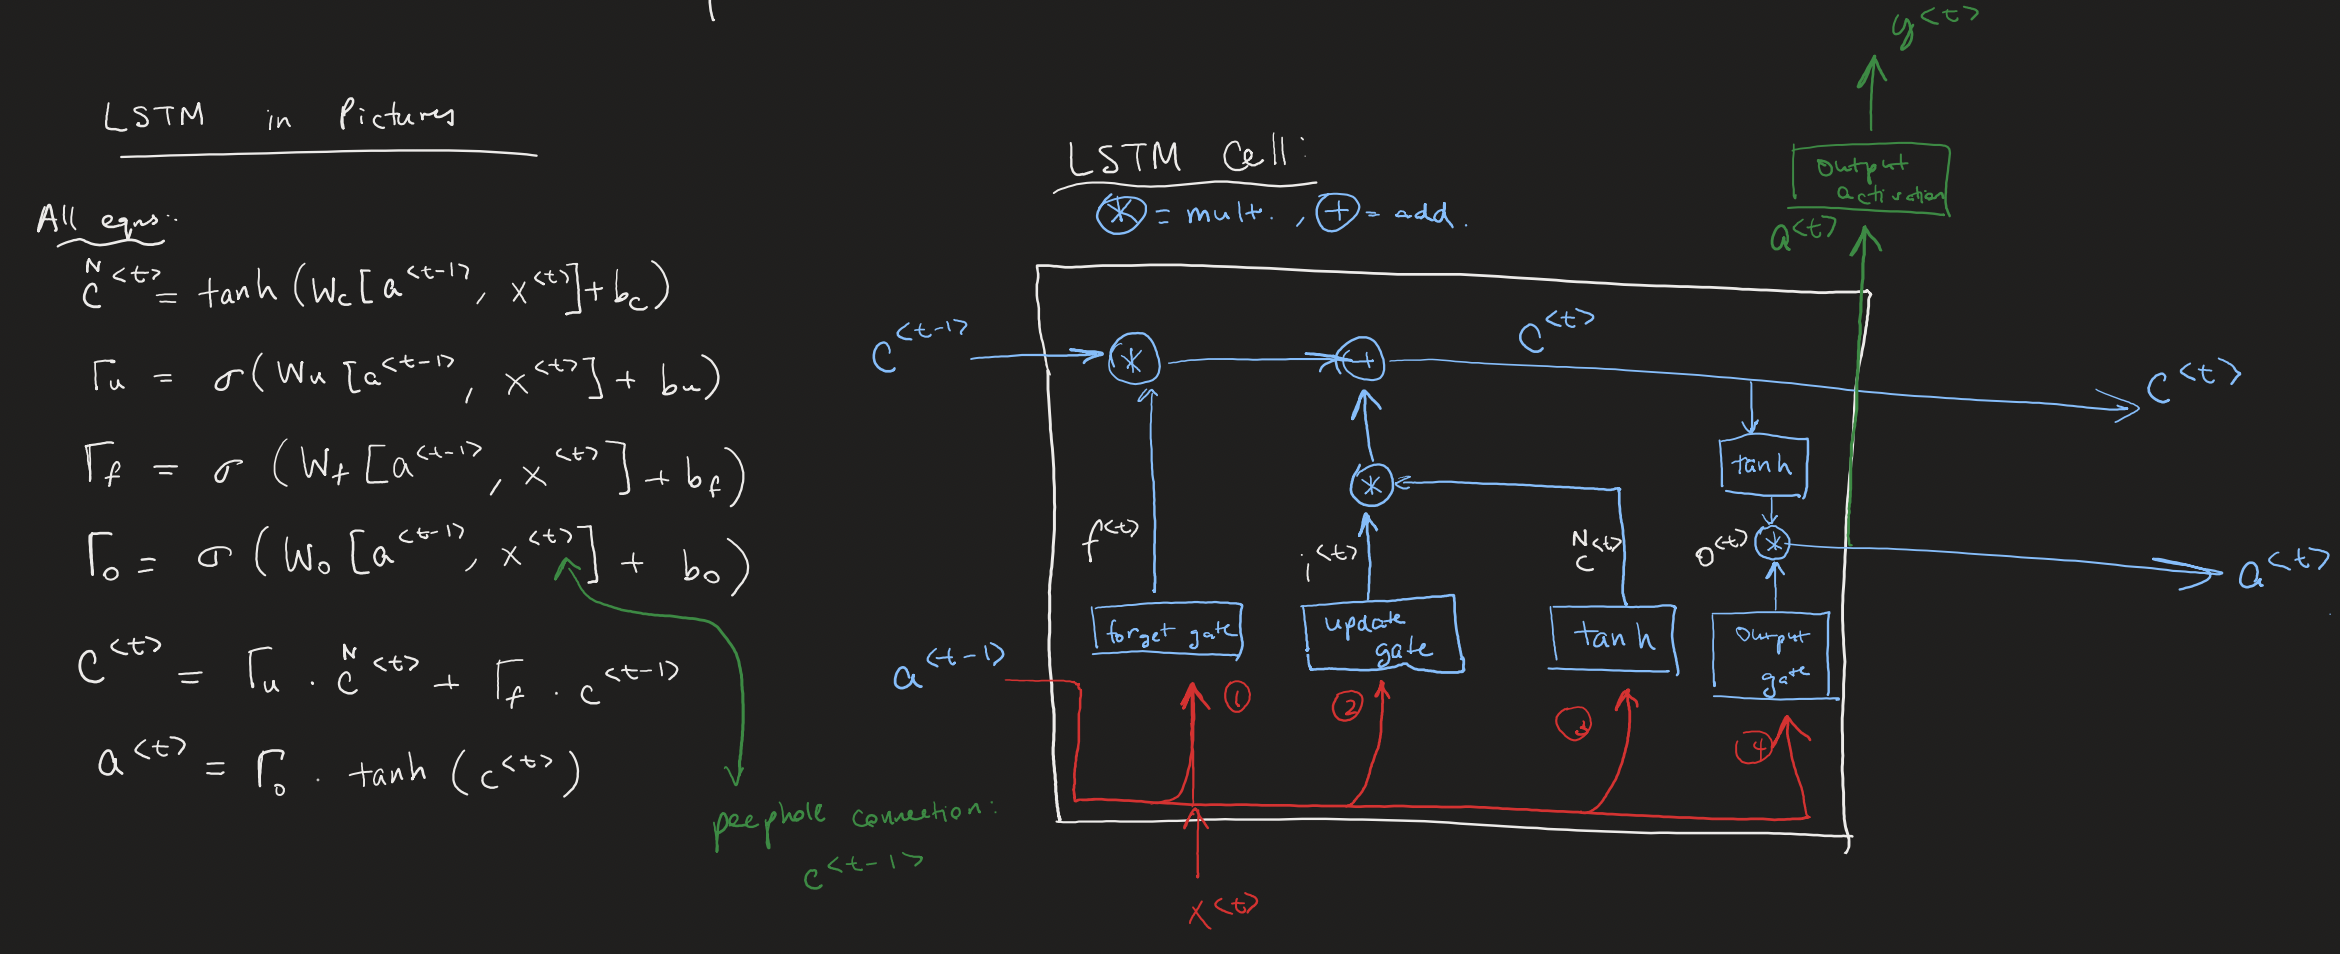 LSTM in Pictures
All eqns:
c̃<t> = tanh(Wc[a<t-1>, x<t>]+bc)
Γu = σ(Wu[a<t-1>, x<t>] + bu)
Γf = σ(Wf[a<t-1>, x<t>] + bf)
Γo = σ(Wo[a<t-1>, x<t>] + bo)
c<t> = Γu · c̃<t> + Γf · c<t-1>
a<t> = Γo · tanh(c<t>)
peephole connection:
c<t-1>
LSTM Cell:
⊛ = mult. , ⊕ = add.
y<t>
Output
activation
a<t>
c<t-1>
*
+
c<t>
c<t>
tanh
*
f<t>
i<t>
c̃<t>
o<t>
*
a<t>
forget gate
update
gate
tanh
Output
gate
a<t-1>
①
②
③
④
x<t>